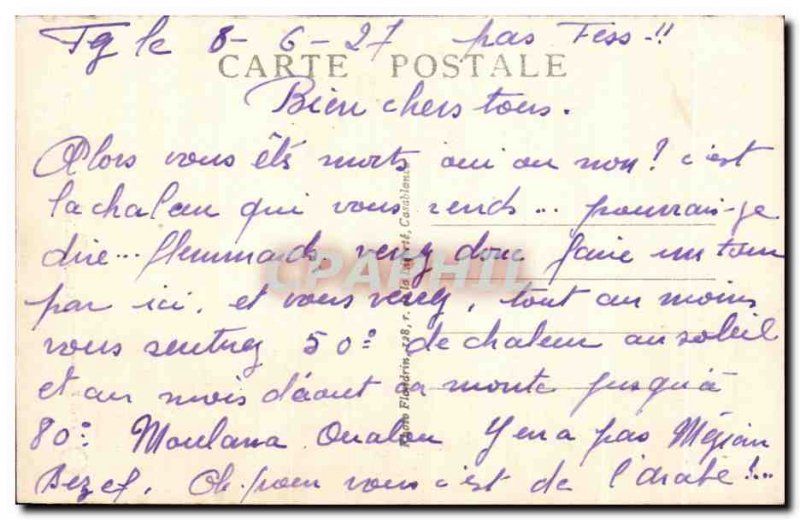 Tg le 8-6-27 pas Fess-!!
CARTE POSTALE
Bien chers tous.
Alors vous êtes morts oui ou non? c'est
la chaleur qui vous rends... pourrais-je
dire... flemmards, venez donc faire un tour
par ici, et vous verez, tout au moins
vous sentirez 50° de chaleur au soleil
et au mois d'août ça monte jusqu'à
80° Moulana Oualou Y en a pas Mézian
Bezef. Oh pour vous c'est de l'arabe!...
Photo Flandrin, 128, r. de la Liberté, Casablanca
CPAPHIL